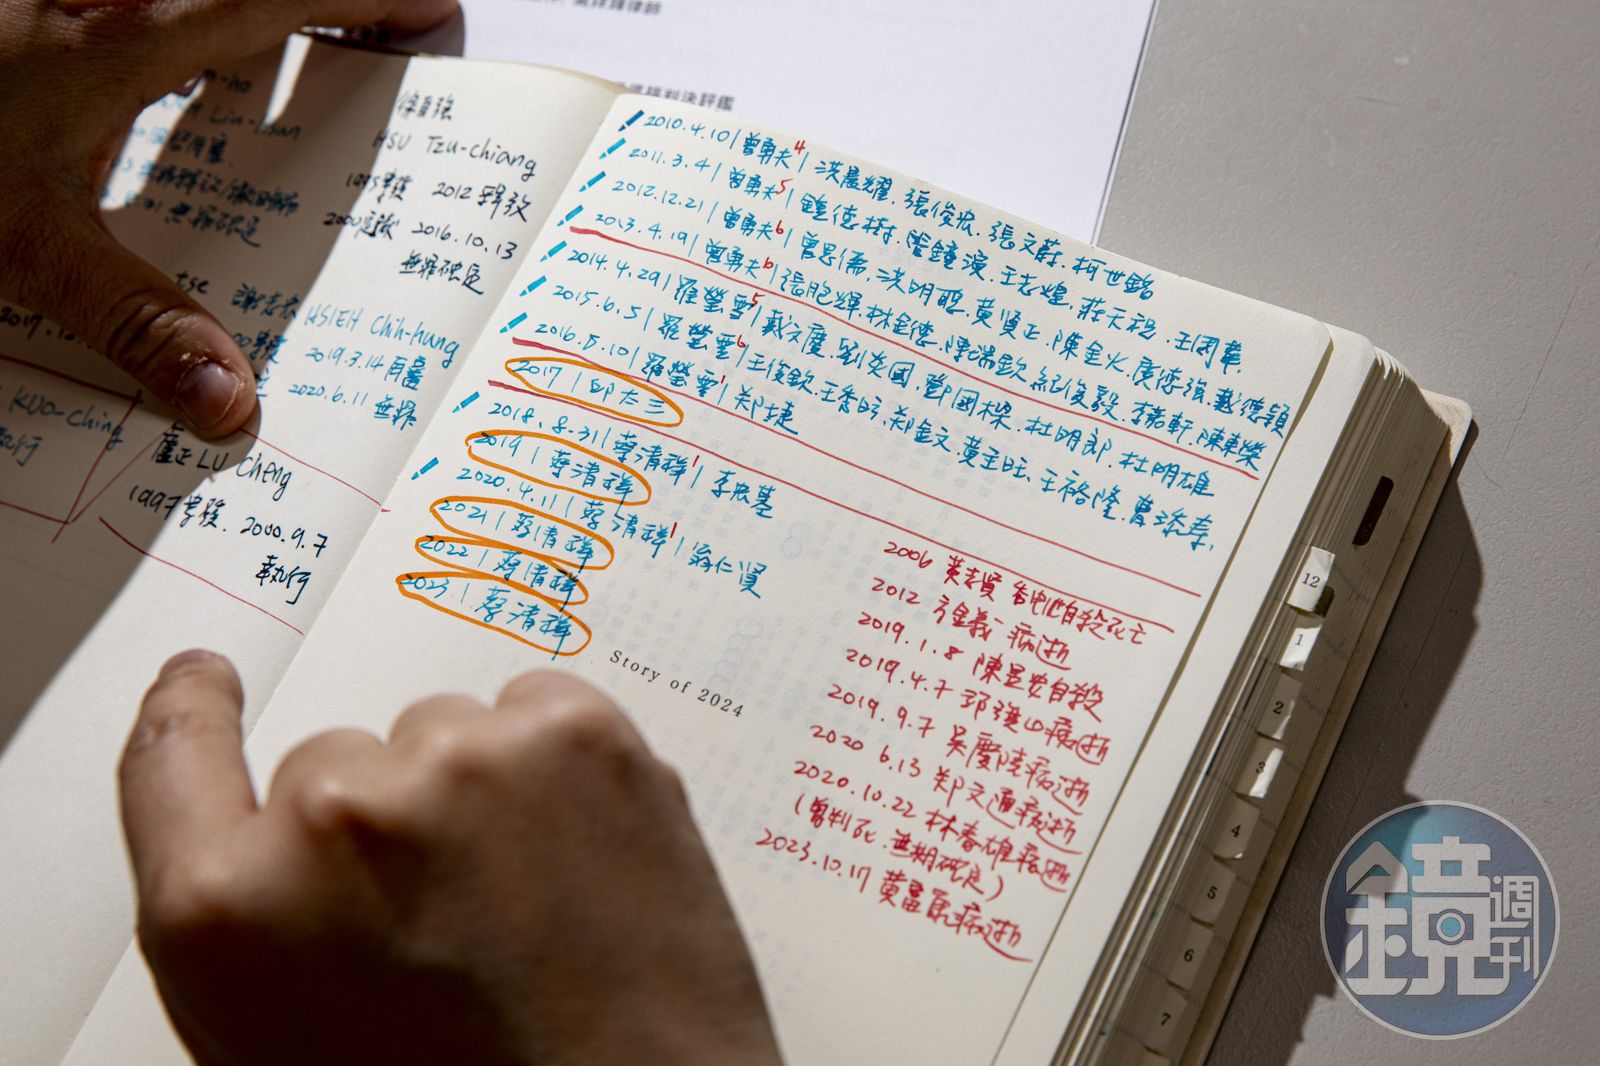 徐自強
HSU Tzu-chiang
1995事發 2012釋放
2016.10.13
無罪確定
HSIEH Chih-hung
2019.3.14再審
2020.6.11無罪
KUO-Ching
執行
盧正LU Cheng
1997事發.2000.9.7
執行
2010.4.10|曾勇夫4|洪晨耀.張俊宏.張文蔚.柯世銘
2011.3.4|曾勇夫5|鍾德樹.管鐘演.王志煌.莊天祝.王國華.
2012.12.21|曾勇夫6|曾思儒.洪明聰.黃賢正.陳金火.廣德強.戴德穎
2013.4.19|曾勇夫6|張胞輝.林金德.陳瑞欽.紀俊毅.李嘉軒.陳東榮
2014.4.29|羅瑩雪5|戴文慶.劉炎國.鄧國樑.杜明郎.杜明雄
2015.6.5|羅瑩雪6|王俊欽.王秀昉.鄭金文.黃主旺.王裕隆.曹添壽.
2016.5.10|羅瑩雪1|鄭捷
2017|邱太三
2018.8.31|蔡清祥1|李宏基
2019|蔡清祥
2020.4.1|蔡清祥1|翁仁賢
2021|蔡清祥
2022|蔡清祥
2023|蔡清祥
Story of 2024
2006 黃志賢 看守所自殺死亡
2012 病逝
2019.1.8 陳昱安自殺
2019.4.7 病逝
2019.9.7 吳慶陸病逝
2020 6.13 鄭文通病逝
2020.10.22 林春雄病逝
(曾判死.無期確定)
2023.10.17 黃富康病逝
12
1
2
3
4
5
6
7
鏡週刊